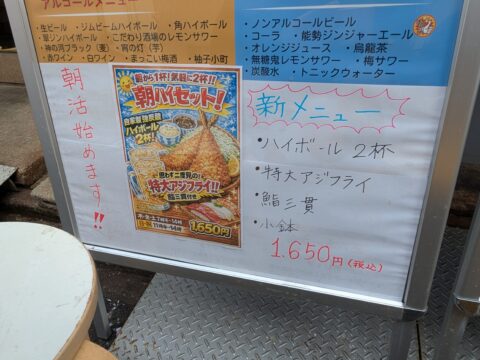 アルコールメニュー
・生ビール ・ジムビームハイボール ・角ハイボール
・翠ジンハイボール ・こだわり酒場のレモンサワー
・神の河ブラック（麦） ・宵の灯（芋）
・赤ワイン ・白ワイン ・まっこい梅酒 ・柚子小町
・ノンアルコールビール
・コーラ ・能勢ジンジャーエール
・オレンジジュース ・烏龍茶
・無糖鬼レモンサワー ・梅サワー
・炭酸水 ・トニックウォーター
朝活始めます!!
朝から1杯!気軽に2杯!!
朝ハイセット!
自家製強炭酸
ハイボール
2杯!
思わず二度見の!
特大アジフライ!!
鮨三貫付き
1,650円
新メニュー
・ハイボール 2杯
・特大アジフライ
・鮨三貫
・小鉢
1.650円(税込)